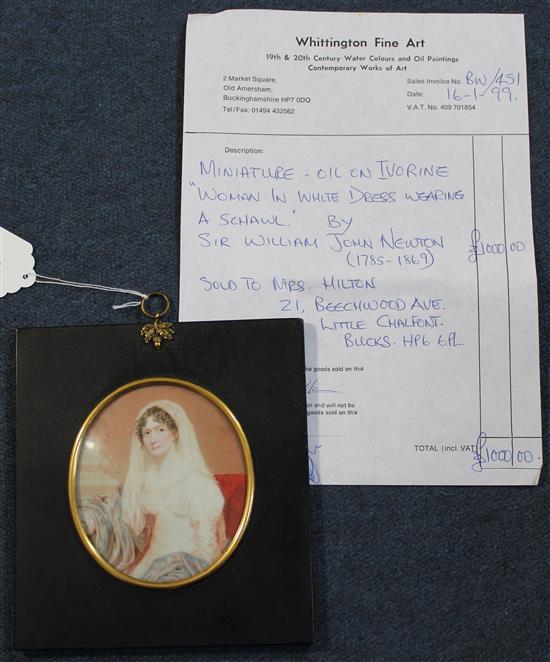 Whittington Fine Art
19th & 20th Century Water Colours and Oil Paintings
Contemporary Works of Art
2 Market Square,
Old Amersham,
Buckinghamshire HP7 0DQ
Tel/Fax: 01494 432562
Sales Invoice No. BW/451
Date: 16-1-99.
V.A.T. No. 409 701854
Description:
MINIATURE - OIL ON IVORINE
"WOMAN IN WHITE DRESS WEARING
A SCHAWL." BY
SIR WILLIAM JOHN NEWTON £1000 00
(1785-1869)
SOLD TO MRS. HILTON
21, BEECHWOOD AVE.
LITTLE CHALFONT.
BUCKS. HP6 6PL.
he goods sold on this
on and will not be
goods sold on this
TOTAL (incl. VAT) £1000 00.